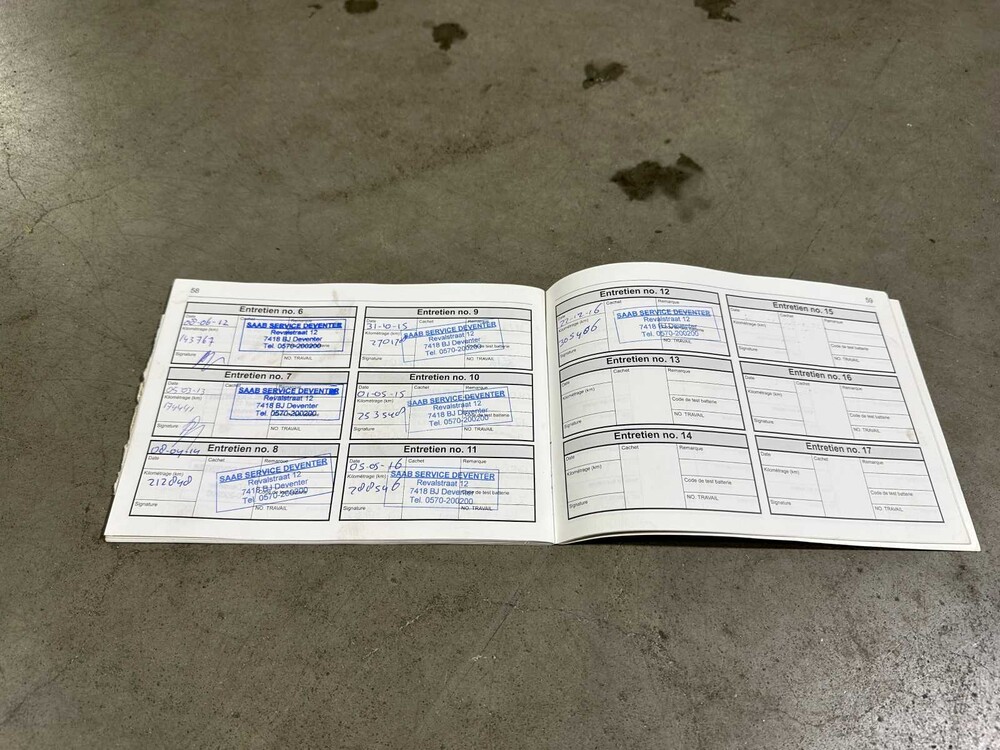 58
Entretien no. 6
Date
Kilométrage (km)
143767
Signature
SAAB SERVICE DEVENTER
Revalstraat 12
7418 BJ Deventer
Tel. 0570-200200
NO. TRAVAIL
Entretien no. 7
Date
Kilométrage (km)
Signature
SAAB SERVICE DEVENTER
Revalstraat 12
7418 BJ Deventer
Tel. 0570-200200
NO. TRAVAIL
Entretien no. 8
Date
08-04-14
Kilométrage (km)
212848
Signature
Cachet
Remarque
SAAB SERVICE DEVENTER
Revalstraat 12
7418 BJ Deventer
Tel. 0570-200200
NO. TRAVAIL
Entretien no. 9
Date
31-10-15
Kilométrage (km)
Signature
Cachet
Remarque
SAAB SERVICE DEVENTER
Revalstraat 12
7418 BJ Deventer
Tel. 0570-200200
NO. TRAVAIL
Entretien no. 10
Date
01-05-15
Kilométrage (km)
253540
Signature
Cachet
Remarque
SAAB SERVICE DEVENTER
Revalstraat 12
7418 BJ Deventer
Tel. 0570-200200
NO. TRAVAIL
Entretien no. 11
Date
05-05-16
Kilométrage (km)
288546
Signature
Cachet
Remarque
SAAB SERVICE DEVENTER
Revalstraat 12
7418 BJ Deventer
Tel. 0570-200200
Code de test batterie
NO. TRAVAIL
59
Entretien no. 12
Date
22-12-16
Kilométrage (km)
305466
Signature
Cachet
Remarque
SAAB SERVICE DEVENTER
Revalstraat 12
7418 BJ Deventer
Tel. 0570-200200
NO. TRAVAIL
Entretien no. 13
Date
Kilométrage (km)
Signature
Cachet
Remarque
Code de test batterie
NO. TRAVAIL
Entretien no. 14
Date
Kilométrage (km)
Signature
Cachet
Remarque
Code de test batterie
NO. TRAVAIL
Entretien no. 15
Date
Kilométrage (km)
Signature
Cachet
Remarque
Code de test batterie
NO. TRAVAIL
Entretien no. 16
Date
Kilométrage (km)
Signature
Cachet
Remarque
Code de test batterie
NO. TRAVAIL
Entretien no. 17
Date
Kilométrage (km)
Signature
Cachet
Remarque
Code de test batterie
NO. TRAVAIL